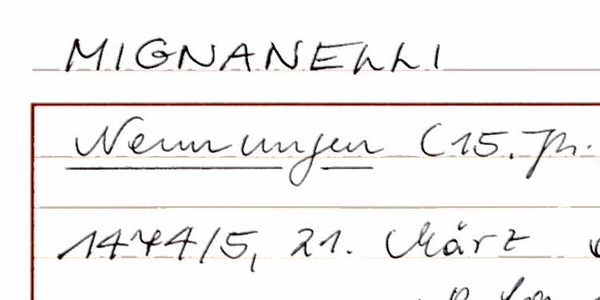 MIGNANELLI
Nennungen (15. Jh.
1474/5, 21. März